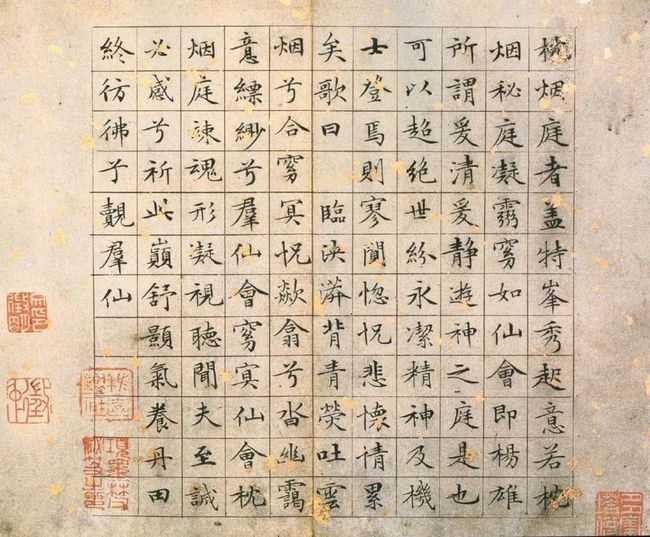 枕烟庭者盖特峯秀起意若枕
烟秘庭凝霛窅如仙會即楊雄
所謂爰清爰静遊神之庭是也
可以超絕世紛永潔精神及機
士登焉則寥闃惚怳悲懷情累
矣歌曰 臨泱漭背青熒吐雲
烟兮合窅冥怳欻翕兮沓幽靄
意縹緲兮羣仙會窅冥仙會枕
烟庭竦魂形凝視聽聞夫至誠
必感兮祈此巔舒顥氣養丹田
終彷彿兮覿羣仙